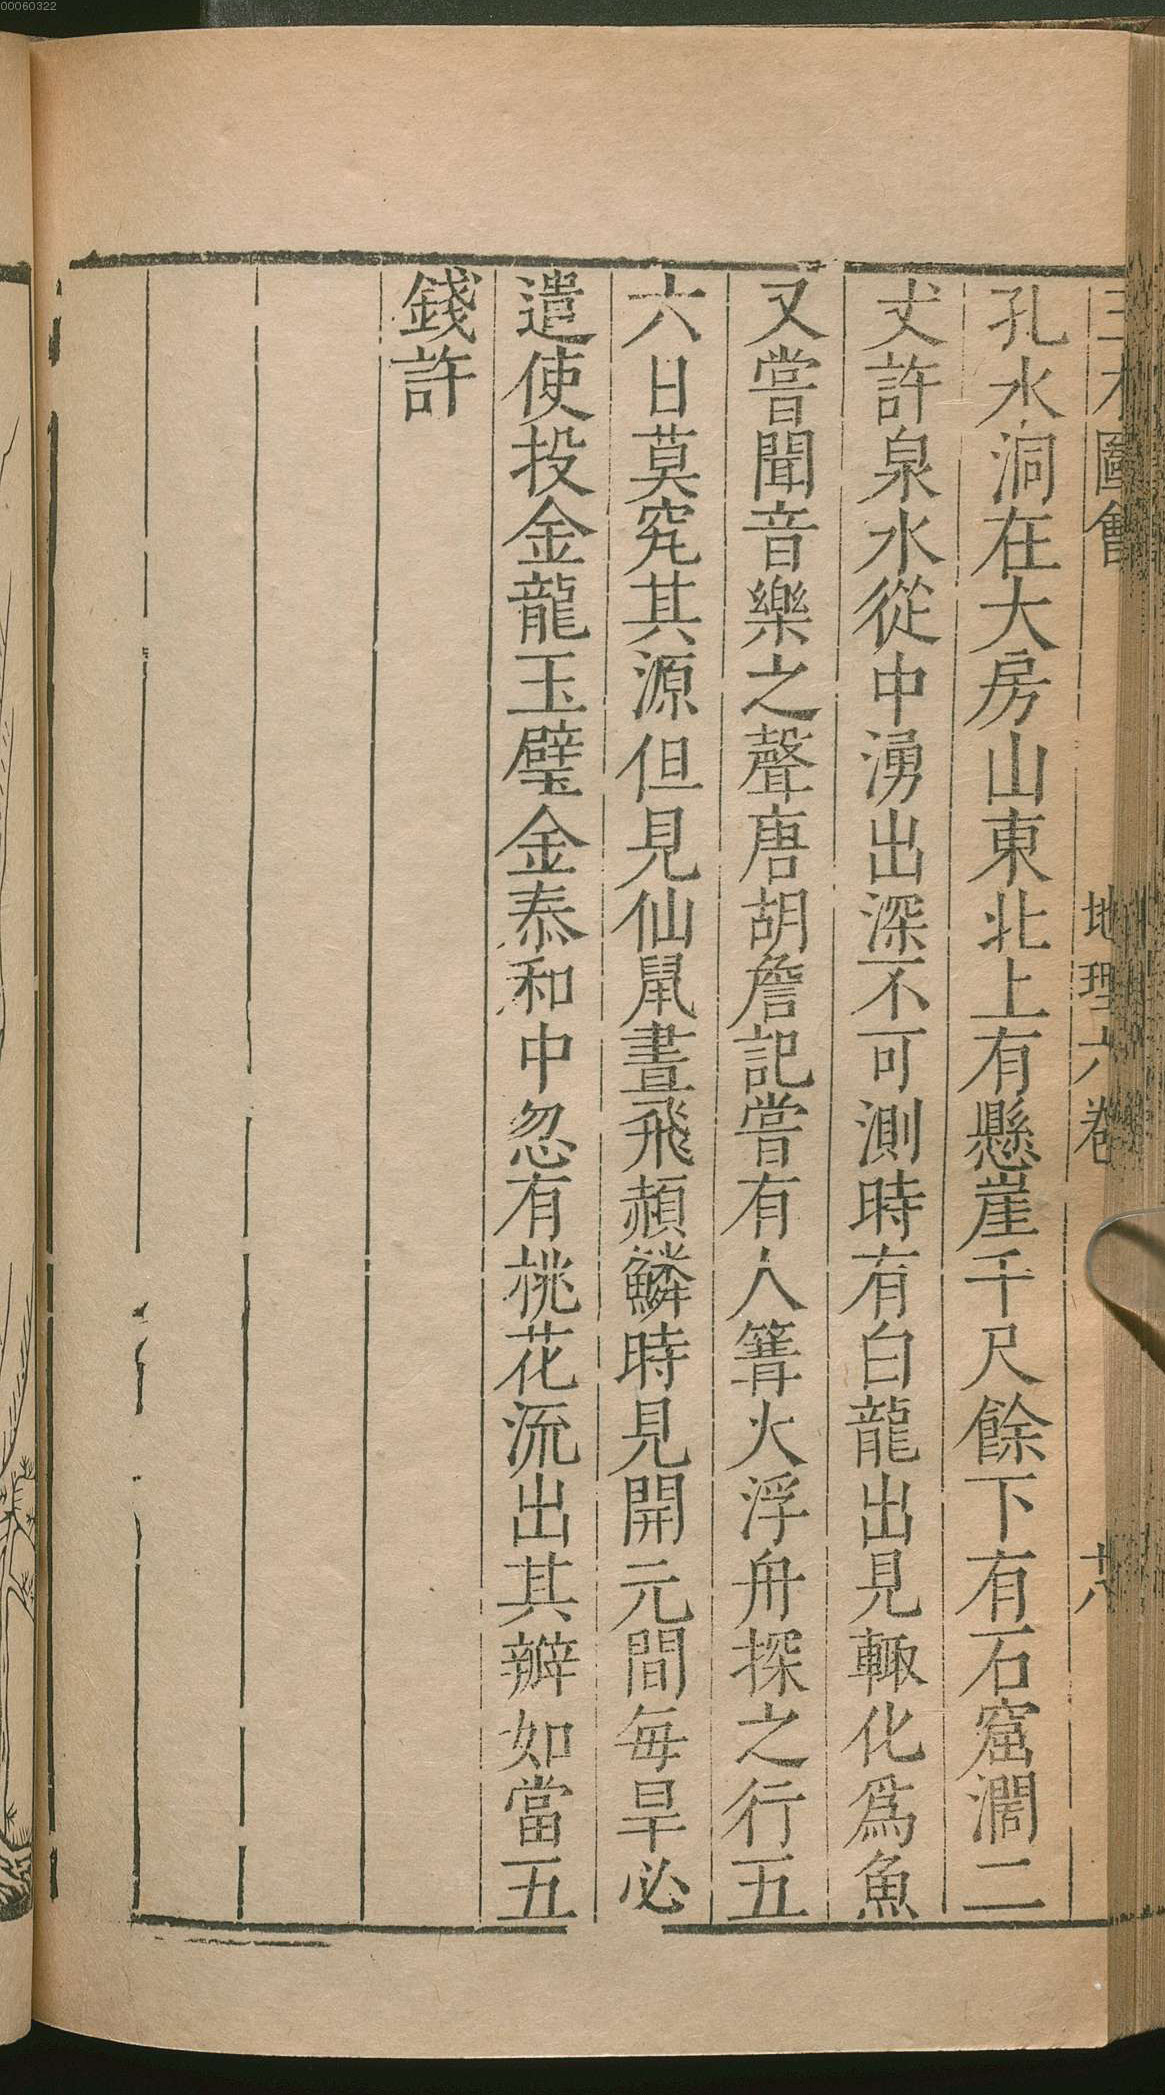 00060322
三才圖會 地理六卷 十六
孔水洞在大房山東北上有懸崖千尺餘下有石窟濶二
丈許泉水從中湧出深不可測時有白龍出見輙化爲魚
又嘗聞音樂之聲唐胡詹記嘗有人篝火浮舟探之行五
六日莫究其源但見仙鼠晝飛赬鱗時見開元間每旱必
遣使投金龍玉璧金泰和中忽有桃花流出其瓣如當五
錢許